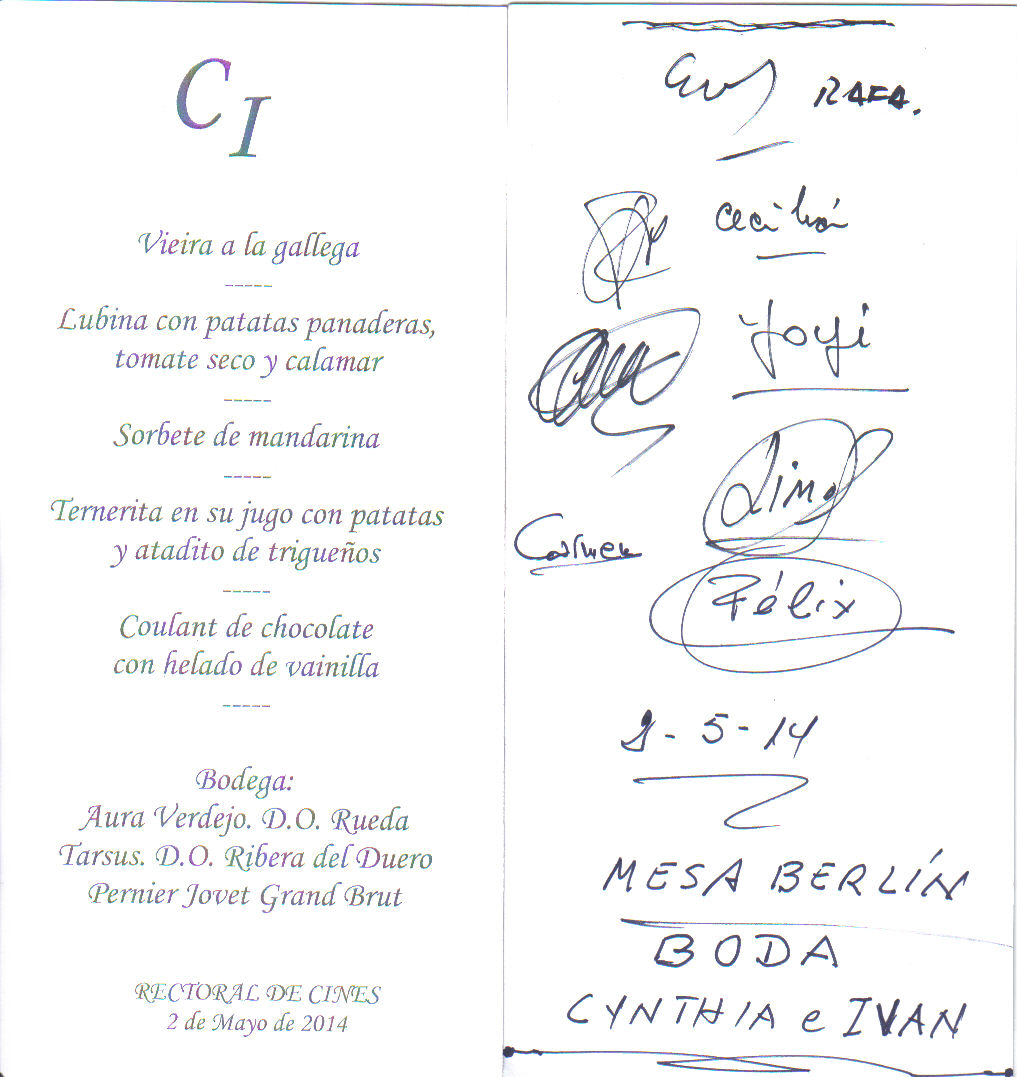 C I
Vieira a la gallega
-----
Lubina con patatas panaderas,
tomate seco y calamar
-----
Sorbete de mandarina
-----
Ternerita en su jugo con patatas
y atadito de trigueños
-----
Coulant de chocolate
con helado de vainilla
-----
Bodega:
Aura Verdejo. D.O. Rueda
Tarsus. D.O. Ribera del Duero
Pernier Jovet Grand Brut
RECTORAL DE CINES
2 de Mayo de 2014
RAFA.
Cecilia
Yoyi
Carmen
Félix
2-5-14
MESA BERLÍN
BODA
CYNTHIA e IVAN